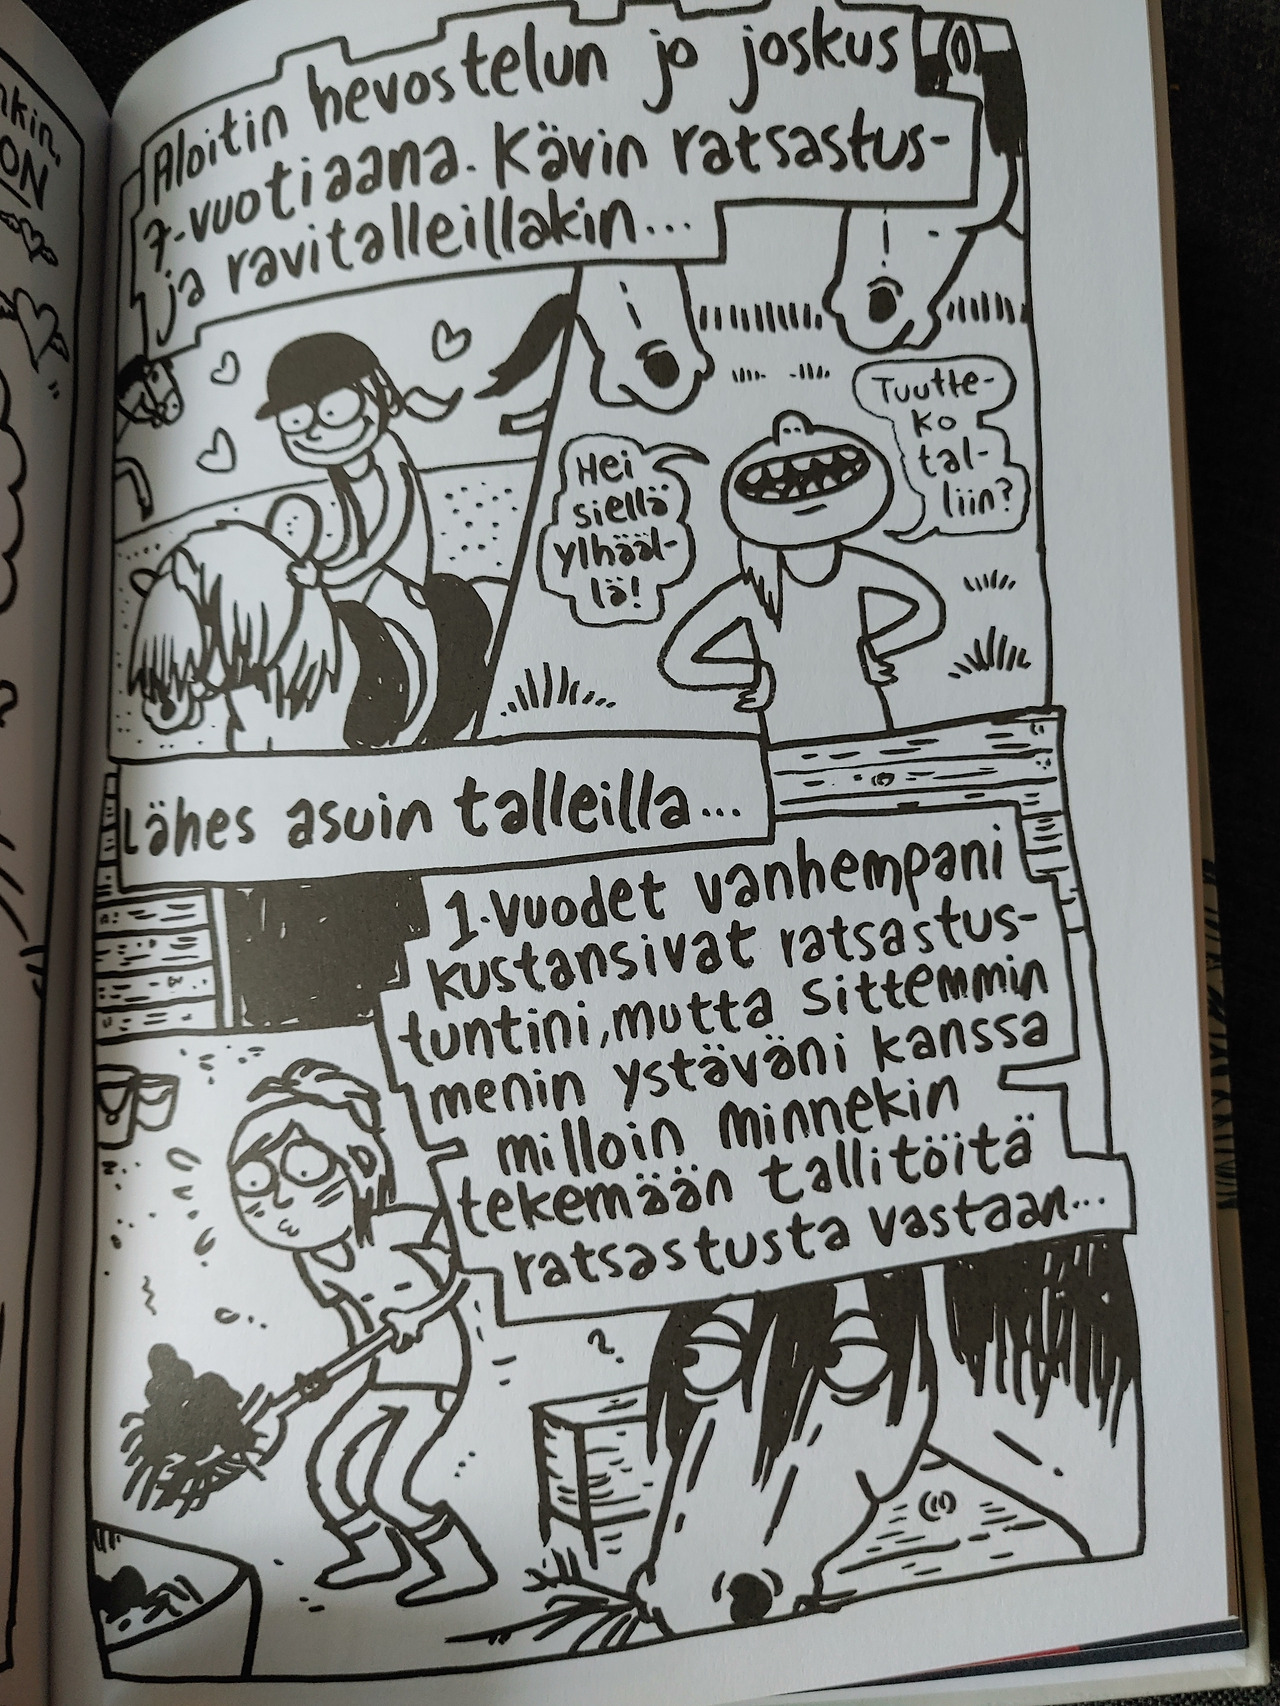 nkin,
ON
Aloitin hevostelun jo joskus
7-vuotiaana. Kävin ratsastus-
ja ravitalleillakin...
Hei
siellä
ylhääl-
lä!
Tuutte-
ko
tal-
liin?
Lähes asuin talleilla...
1.vuodet vanhempani
kustansivat ratsastus-
tuntini, mutta sittemmin
menin ystäväni kanssa
milloin minnekin
tekemään tallitöitä
ratsastusta vastaan...
?